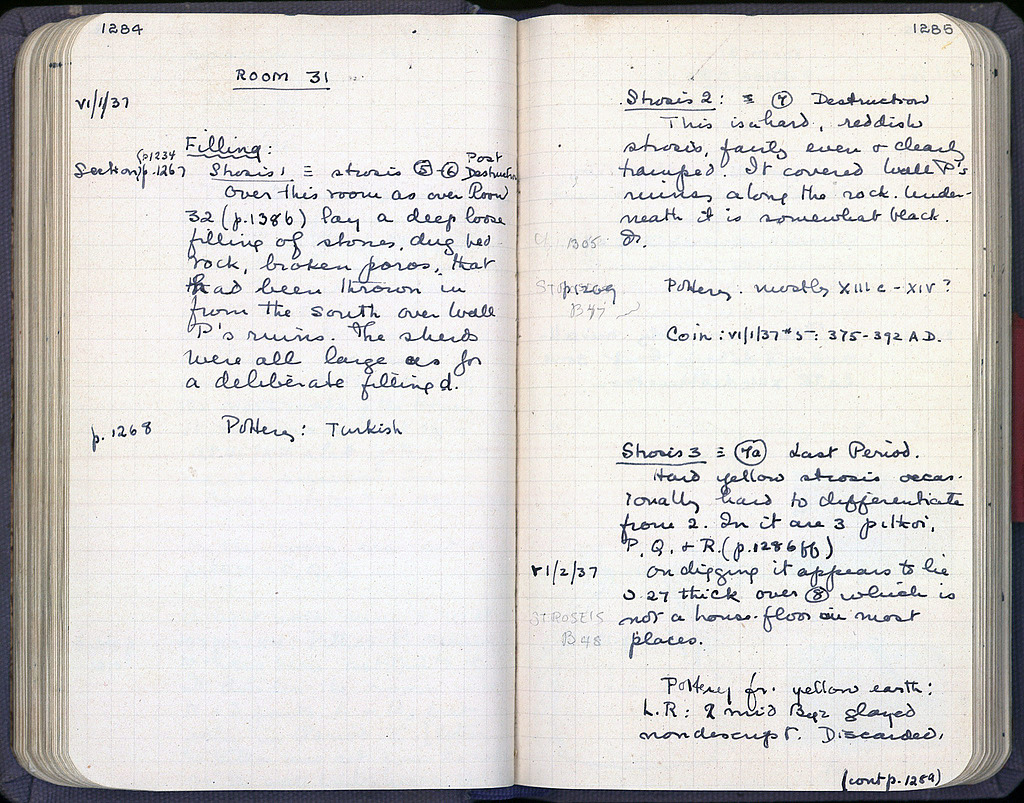 1284
ROOM 31
VI/1/37
Filling:
(p1234
Section p.1267 Strosis 1 ≡ strosis ⑤-⑥ Post Destruction
Over this room as over Room
32 (p.1386) lay a deep loose
filling of stones, dug bed
rock, broken poros, that
had been thrown in
from the South over Wall
P's ruins. The sherds
were all large as for
a deliberate filling
p. 1268 Pottery: Turkish
1285
Strosis 2: ≡ ⑦ Destruction
This is a hard, reddish
strosis, fairly even & clearly
tramped. It covered Wall P's
ruins along the rock. Under-
neath it is somewhat black.
1305
p1269 Pottery. mostly XIII c - XIV?
B47
Coin: VI/1/37 #5: 375-392 A.D.
Strosis 3 ≡ ⑦a Last Period.
Hard yellow strosis occas-
ionally hard to differentiate
from 2. In it are 3 pithoi,
P, Q, + R. (p.1286ff)
VI/2/37 On digging it appears to lie
0.27 thick over ⑧ which is
STROSEIS not a house floor in most
B48 places.
Pottery fr. yellow earth:
L.R: & mid Byz glazed
nondescript. Discarded.
(cont p. 1289)